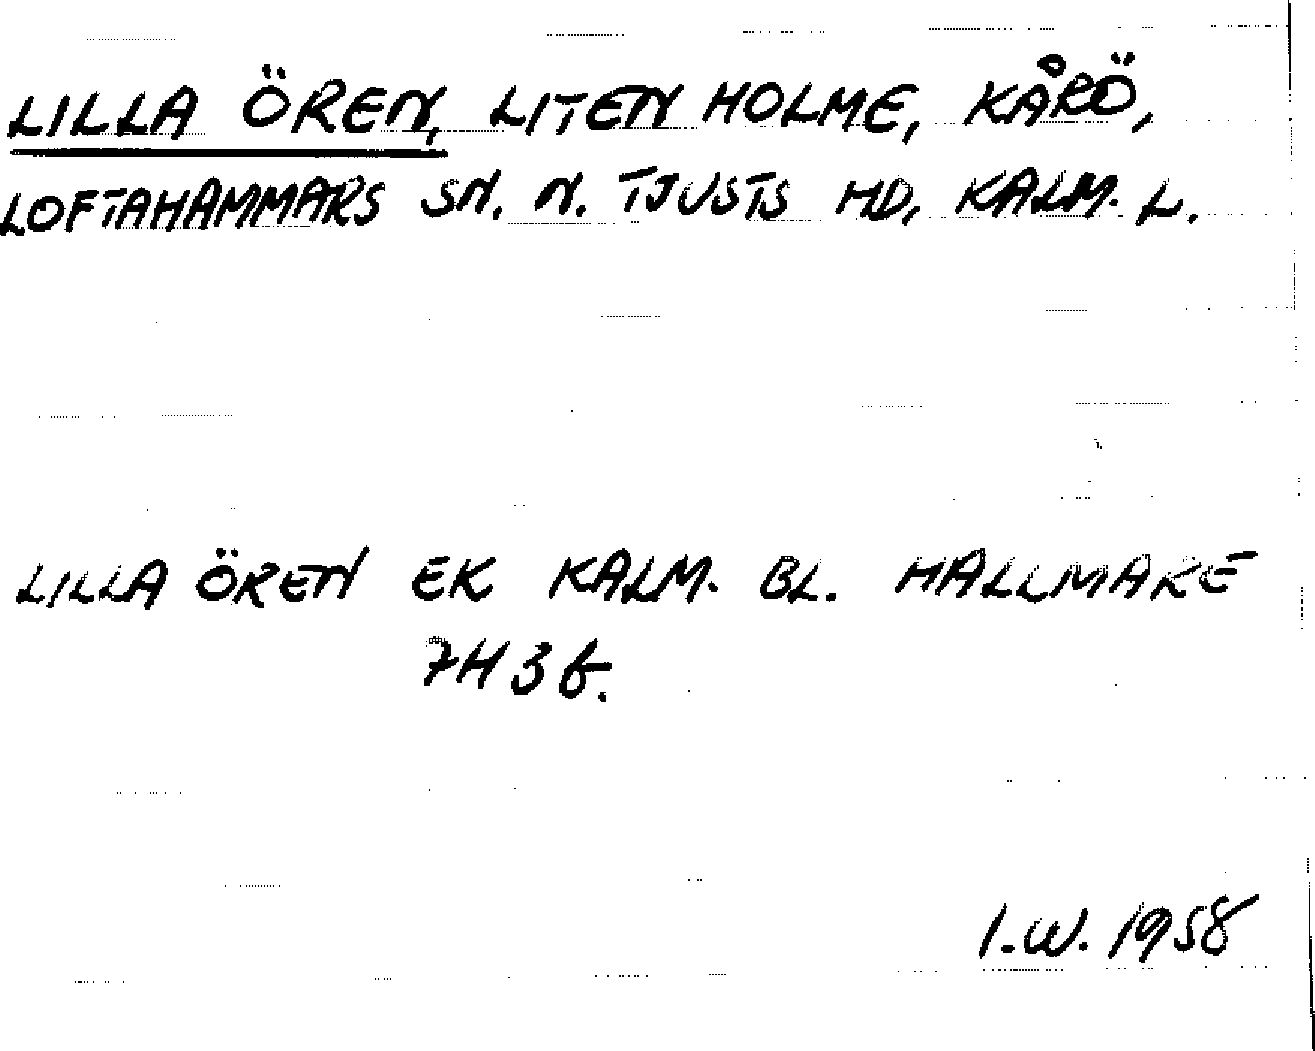 LILLA ÖREN, LITEN HOLME, KÅRÖ,
LOFTAHAMMARS SN. N. TJUSTS HD, KALM. L.
LILLA ÖREN EK KALM. BL. HALLMARE
7H3f.
I.W. 1958